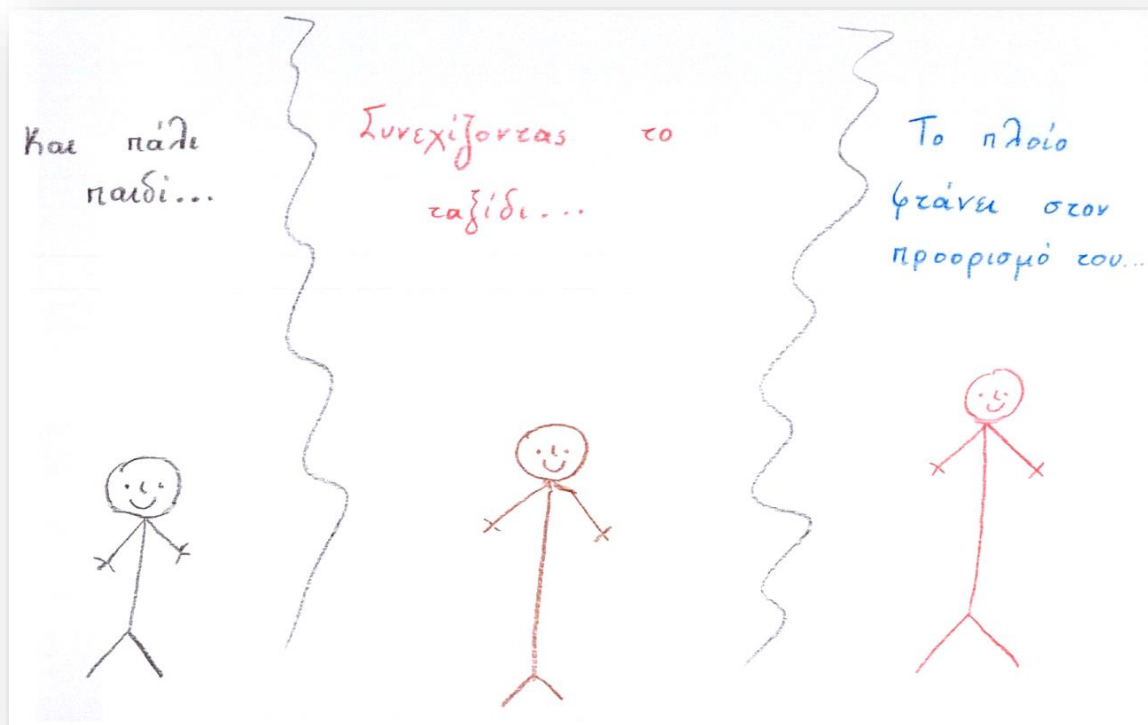 Και πάλι
παιδί...
Συνεχίζοντας το
ταξίδι...
Το πλοίο
φτάνει στον
προορισμό του...